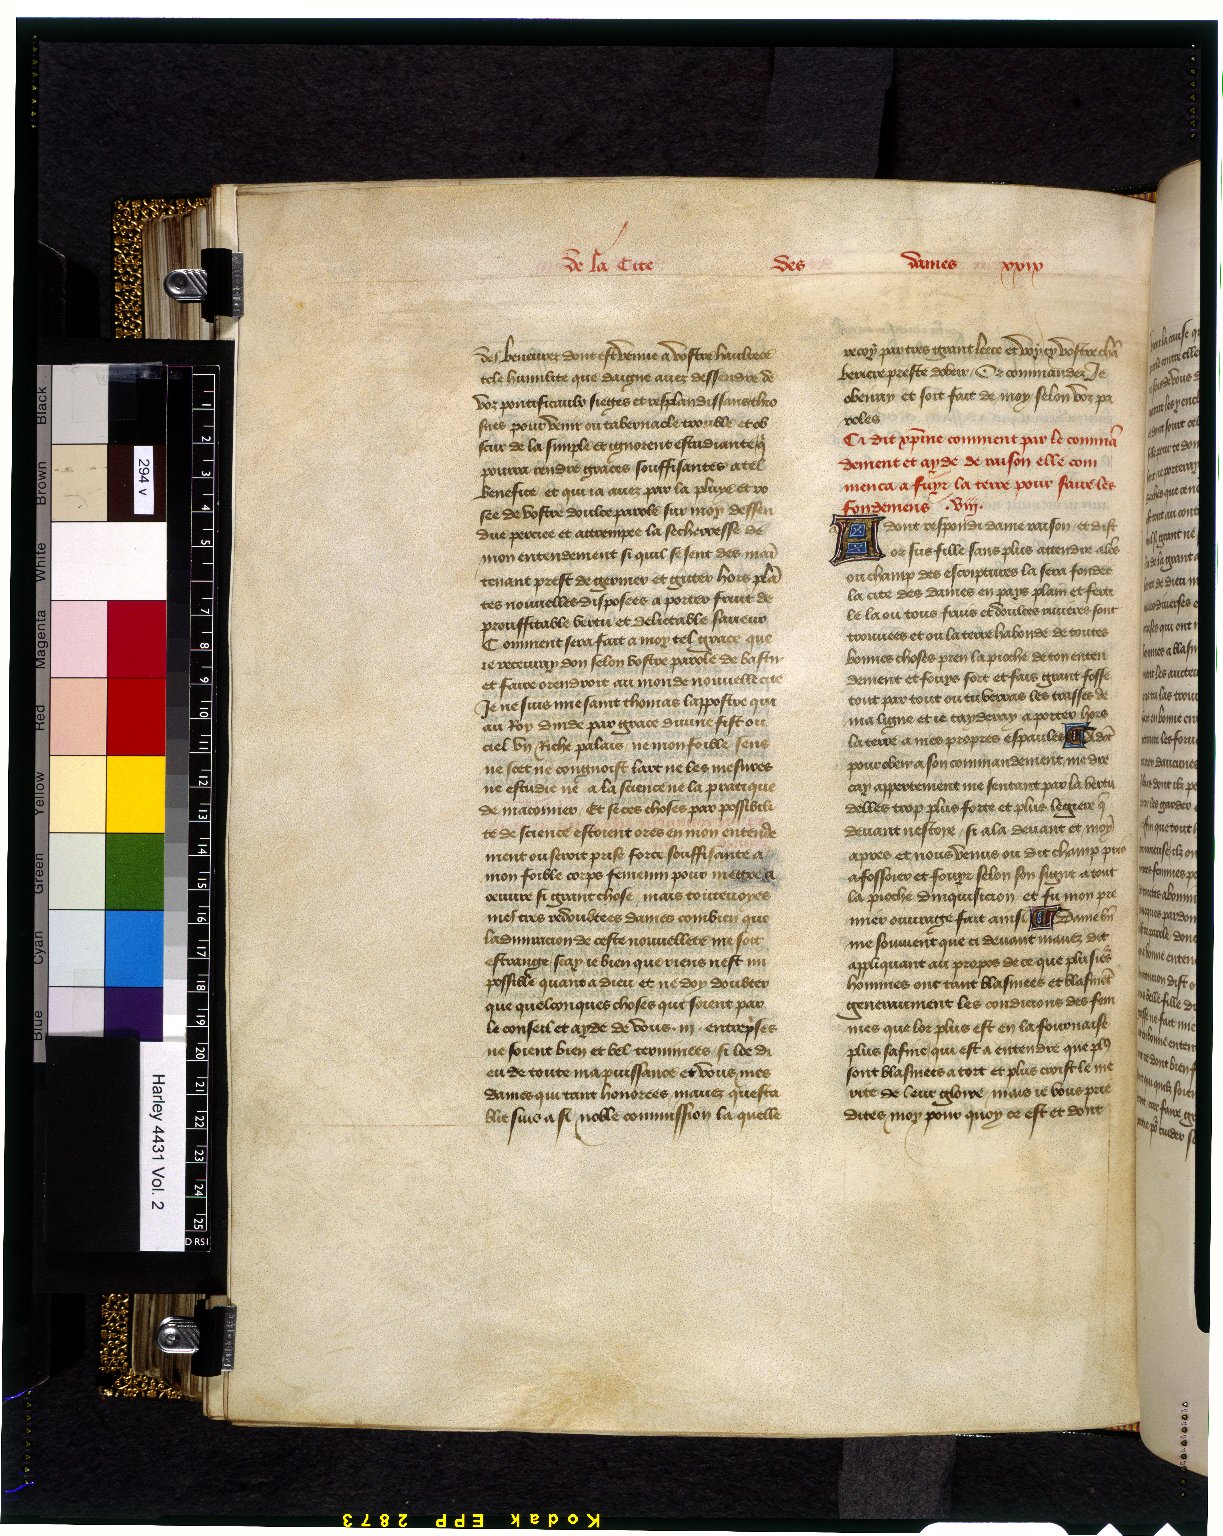 de la Cite des dames xxix
des beneurez dont est venue a vostre haultece
tele humilite que daigne auez dessendre de
voz pontificaulx sieges et resplandissans thro
snes pour venir ou tabernacle trouble et ob
scur de la simple et ignorent estudiante q̃
pourra rendre graces souffisantes a tel
benefice et qui ia auez par la pluye et ro
see de vostre doulce parole sur moy dessen
due perciee et attrempee la secherresse de
mon entendement si quil se sent des mai
tenant prest de germer et giter hors plã
tes nouuelles disposees a porter fruit de
prouffitable vertu et delictable saueur
Comment sera fait a moy tel grace que
ie receuray don selon vostre parole de bastir
et faire orendroit au monde nouuelle cite
Je ne suis mie saint thomas lappostre qui
au Roy dinde par grace diuine fist ou
ciel vn Riche palais ne mon foible sens
ne scet ne congnoist lart ne les mesures
ne estudie ne a la science ne la pratique
de maconner et se ces choses par possibili
te de science estoient ores en mon entende
ment ou seroit prise force souffisante a
mon foible corps femenin pour mettre a
oeuure si grant chose mais toutevoyes
mes tres redoubtees dames combien que
ladmiracion de ceste nouuellete me soit
estrange scay ie bien que riens nest im
possible quant a dieu et ne doy doubter
que quelconques choses qui soient par
le conseil et ayde de vous .iij. entrep̃ses
ne soient bien et bel terminees si loe di
eu de toute ma puissance et vous mes
dames qui tant honoree mauez questa
blie suis a si noble commission la quelle
recoy par tres grant leece et voy cy vostre chã
beriere preste dobeir Or commandez Je
obeiray et soit fait de moy selon voz pa
roles
Ci dit xp̃ine comment par le commã
dement et ayde de raison elle com
menca a fuyr la terre pour faire les
fondemens .viij.
A dont respondi dame raison et dist
or sus fille sans plus attendre alõs
ou champ des escriptures la sera fondee
la cite des dames en pays plain et ferti
le la ou tous fruis et doulces riuieres sont
trouuees et ou la terre habonde de toutes
bonnes choses pren la pioche de ton enten
dement et fouys fort et fais grant fosse
tout par tout ou tu verras les trasses de
ma ligne et ie tayderay a porter hors
la terre a mes propres espaules Adõt
pour obeir a son commandement me dre
cay appertement me sentant par la vertu
delles trop plus forte et plus legiere q̃
deuant nestoye si ala deuant et moy
apres et nous venus ou dit champ pris
a fossoier et fouyr selon son signe a tout
la pioche dinquisicion et fu mon pre
mier ouurage fait ainsi Dame bñ
me souuient que ci deuant mauez dit
appliquant au propos de ce que plusieᵘˢ
hommes ont tant blasmees et blasmẽt
generaument les condicions des fem
mes que lor plus est en la fournaise
plus safine qui est a entendre que plꝰ
sont blasmees a tort et plus croist le me
rite de leur gloire mais ie vous prie
dites moy pour quoy ce est et dont
Black
Brown
White
Magenta
Red
Yellow
Green
Cyan
Blue
294 v
Harley 4431 Vol. 2
1
2
3
4
5
7
8
9
10
11
12
13
14
15
16
17
18
19
20
21
22
23
24
25
DRSI
Kodak EPP 2873